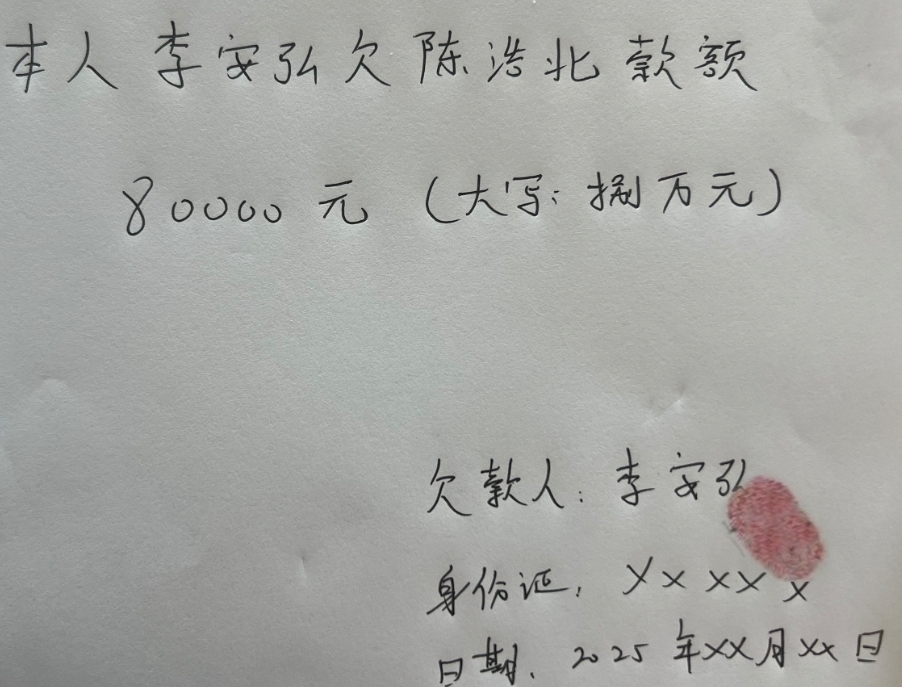 本人李安弘欠陈浩北款额
80000元（大写：捌万元）
欠款人：李安弘
身份证：XXXXX
日期：2025年XX月XX日